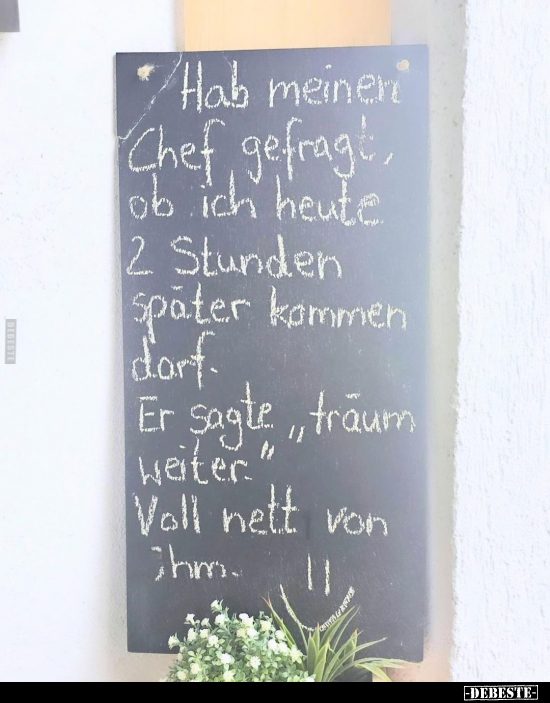 Hab meinen
Chef gefragt,
ob ich heute
2 Stunden
später kommen
darf.
Er sagte „träum
weiter."
Voll nett von
ihm.
DEBESTE
-DEBESTE-